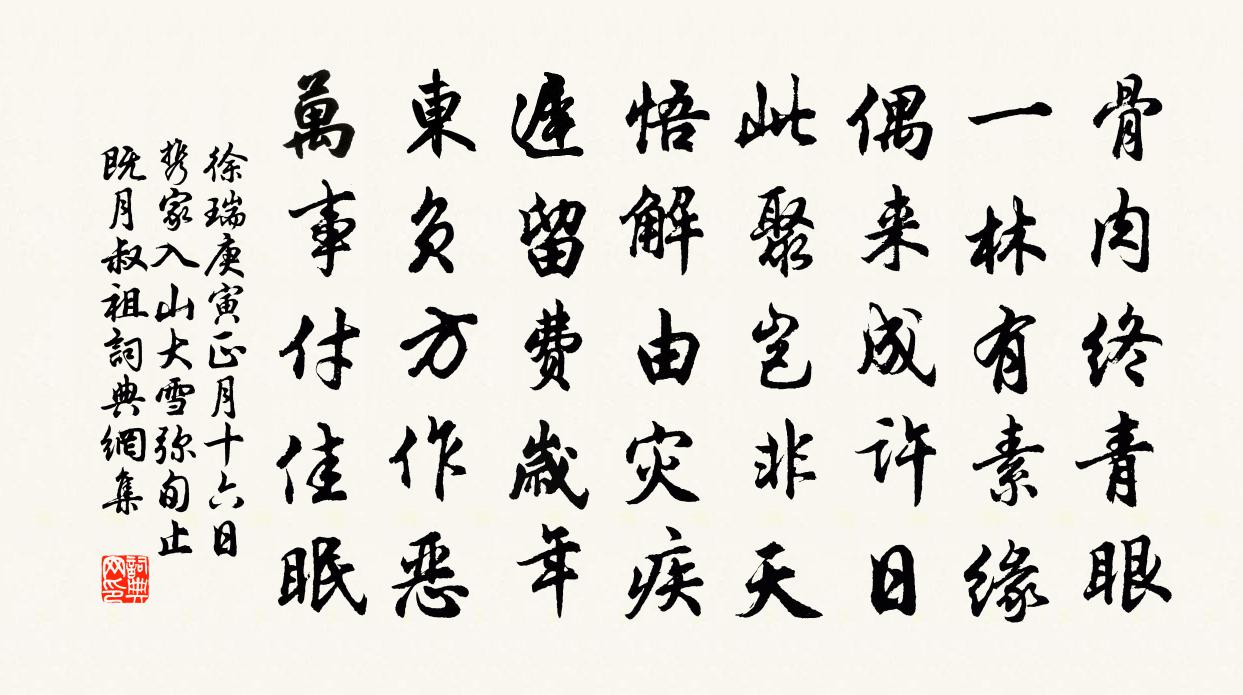 骨肉终青眼
一林有素緣
偶来成许日
此聚岂非天
悟解由灾疾
遲留費歲年
東負方作惡
萬事付佳眠
徐瑞庚寅正月十六日
携家入山大雪弥旬止
既月叔祖詞典網集
詞典网印